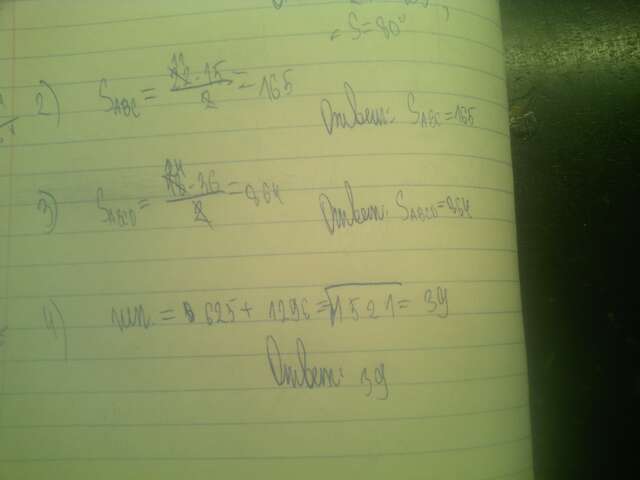 S=80
2) S ABC = 22·15 / 2 = 165
Ответ: S ABC = 165
3) S ABCD = 48·36 / 2 = 864
Ответ: S ABCD = 864
4) = 625 + 1296 = √1521 = 39
Ответ: 39